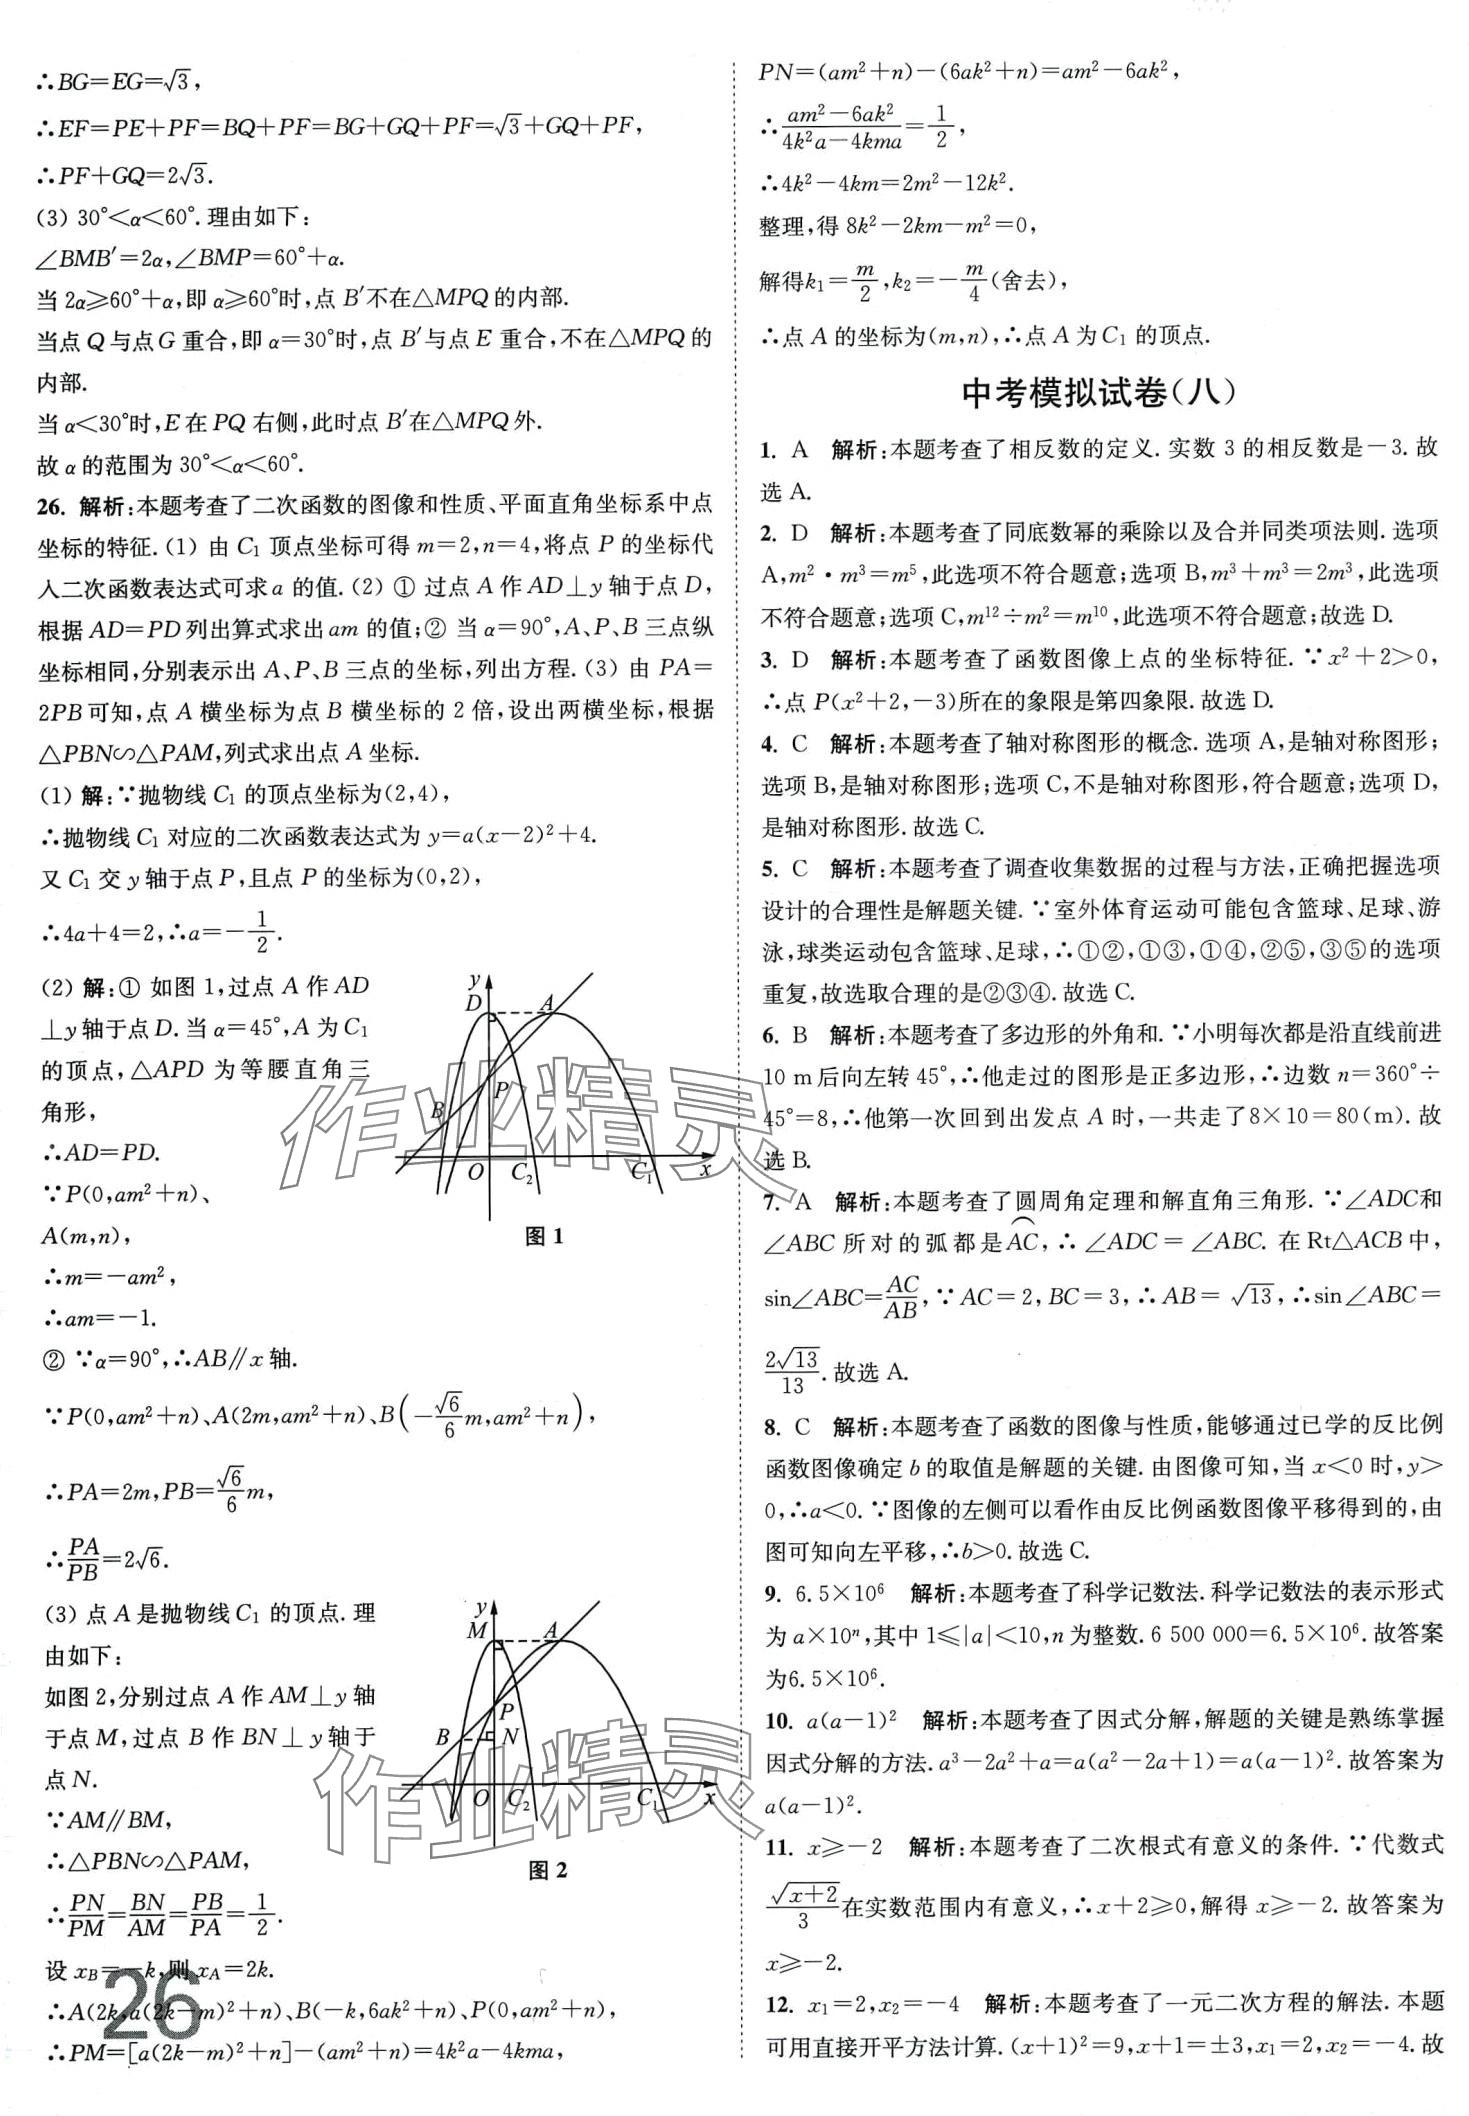 ∴BG=EG=√3,
∴EF=PE+PF=BQ+PF=BG+GQ+PF=√3+GQ+PF,
∴PF+GQ=2√3.
(3) 30°<α<60°.理由如下:
∠BMB′=2α,∠BMP=60°+α.
当 2α≥60°+α,即 α≥60°时,点 B′不在△MPQ 的内部.
当点 Q 与点 G 重合,即 α=30°时,点 B′与点 E 重合,不在△MPQ 的
内部.
当 α<30°时,E 在 PQ 右侧,此时点 B′在△MPQ 外.
故 α 的范围为 30°<α<60°.
26. 解析:本题考查了二次函数的图像和性质、平面直角坐标系中点
坐标的特征.(1) 由 C₁ 顶点坐标可得 m=2,n=4,将点 P 的坐标代
入二次函数表达式可求 a 的值.(2) ① 过点 A 作 AD⊥y 轴于点 D,
根据 AD=PD 列出算式求出 am 的值;② 当 α=90°,A、P、B 三点纵
坐标相同,分别表示出 A、P、B 三点的坐标,列出方程.(3) 由 PA=
2PB 可知,点 A 横坐标为点 B 横坐标的 2 倍,设出两横坐标,根据
△PBN∽△PAM,列式求出点 A 坐标.
(1) 解:∵抛物线 C₁ 的顶点坐标为(2,4),
∴抛物线 C₁ 对应的二次函数表达式为 y=a(x-2)²+4.
又 C₁ 交 y 轴于点 P,且点 P 的坐标为(0,2),
∴4a+4=2,∴a=-1/2.
(2) 解:① 如图 1,过点 A 作 AD
⊥y 轴于点 D.当 α=45°,A 为 C₁
的顶点,△APD 为等腰直角三
角形,
∴AD=PD.
∵P(0,am²+n)、
A(m,n),
∴m=-am²,
∴am=-1.
y
D
A
P
B
O
C₂
C₁
x
图 1
② ∵α=90°,∴AB∥x 轴.
∵P(0,am²+n)、A(2m,am²+n)、B(-√6/6 m,am²+n),
∴PA=2m,PB=√6/6 m,
∴PA/PB=2√6.
(3) 点 A 是抛物线 C₁ 的顶点.理
由如下:
如图 2,分别过点 A 作 AM⊥y 轴
于点 M,过点 B 作 BN⊥y 轴于
点 N.
∵AM∥BM,
∴△PBN∽△PAM,
∴PN/PM=BN/AM=PB/PA=1/2.
y
M
A
P
B
N
O
C₂
C₁
x
图 2
设 x_B=-k,则 x_A=2k.
∴A(2k,a(2k-m)²+n)、B(-k,6ak²+n)、P(0,am²+n),
∴PM=[a(2k-m)²+n]-(am²+n)=4k²a-4kma,
26
PN=(am²+n)-(6ak²+n)=am²-6ak²,
∴(am²-6ak²)/(4k²a-4kma)=1/2,
∴4k²-4km=2m²-12k².
整理,得 8k²-2km-m²=0,
解得k₁=m/2,k₂=-m/4(舍去),
∴点 A 的坐标为(m,n),∴点 A 为 C₁ 的顶点.
中考模拟试卷(八)
1. A 解析:本题考查了相反数的定义.实数 3 的相反数是-3.故
选 A.
2. D 解析:本题考查了同底数幂的乘除以及合并同类项法则.选项
A,m²·m³=m⁵,此选项不符合题意;选项 B,m³+m³=2m³,此选项
不符合题意;选项 C,m¹²÷m²=m¹⁰,此选项不符合题意;故选 D.
3. D 解析:本题考查了函数图像上点的坐标特征.∵x²+2>0,
∴点 P(x²+2,-3)所在的象限是第四象限.故选 D.
4. C 解析:本题考查了轴对称图形的概念.选项 A,是轴对称图形;
选项 B,是轴对称图形;选项 C,不是轴对称图形,符合题意;选项 D,
是轴对称图形.故选 C.
5. C 解析:本题考查了调查收集数据的过程与方法,正确把握选项
设计的合理性是解题关键.∵室外体育运动可能包含篮球、足球、游
泳,球类运动包含篮球、足球,∴①②,①③,①④,②⑤,③⑤的选项
重复,故选取合理的是②③④.故选 C.
6. B 解析:本题考查了多边形的外角和.∵小明每次都是沿直线前进
10 m后向左转 45°,∴他走过的图形是正多边形,∴边数 n=360°÷
45°=8,∴他第一次回到出发点 A 时,一共走了8×10=80(m).故
选 B.
7. A 解析:本题考查了圆周角定理和解直角三角形.∵∠ADC和
∠ABC 所对的弧都是A͡C,∴∠ADC=∠ABC.在 Rt△ACB 中,
sin∠ABC=AC/AB,∵AC=2,BC=3,∴AB=√13,∴sin∠ABC=
2√13/13.故选 A.
8. C 解析:本题考查了函数的图像与性质,能够通过已学的反比例
函数图像确定 b 的取值是解题的关键.由图像可知,当 x<0 时,y>
0,∴a<0.∵图像的左侧可以看作由反比例函数图像平移得到的,由
图可知向左平移,∴b>0.故选 C.
9. 6.5×10⁶ 解析:本题考查了科学记数法.科学记数法的表示形式
为 a×10ⁿ,其中 1≤|a|<10,n 为整数.6 500 000=6.5×10⁶.故答案
为6.5×10⁶.
10. a(a-1)² 解析:本题考查了因式分解,解题的关键是熟练掌握
因式分解的方法.a³-2a²+a=a(a²-2a+1)=a(a-1)².故答案为
a(a-1)².
11. x≥-2 解析:本题考查了二次根式有意义的条件.∵代数式
√(x+2)/3在实数范围内有意义,∴x+2≥0,解得 x≥-2.故答案为
x≥-2.
12. x₁=2,x₂=-4 解析:本题考查了一元二次方程的解法.本题
可用直接开平方法计算.(x+1)²=9,x+1=±3,x₁=2,x₂=-4.故
作业精灵
作业精灵